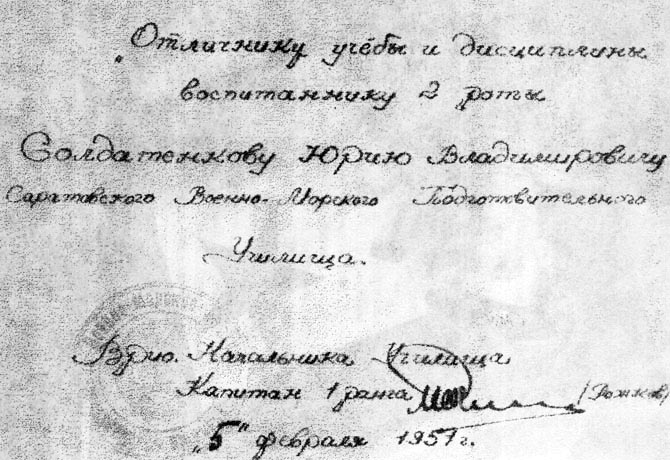 "Отличнику учёбы и дисциплины
воспитаннику 2 роты
Солдатенкову Юрию Владимировичу
Саратовского Военно-Морского Подготовительного
Училища.
Врио. Начальника Училища
Капитан 1 ранга (Рожков)
"5" февраля 1951 г.